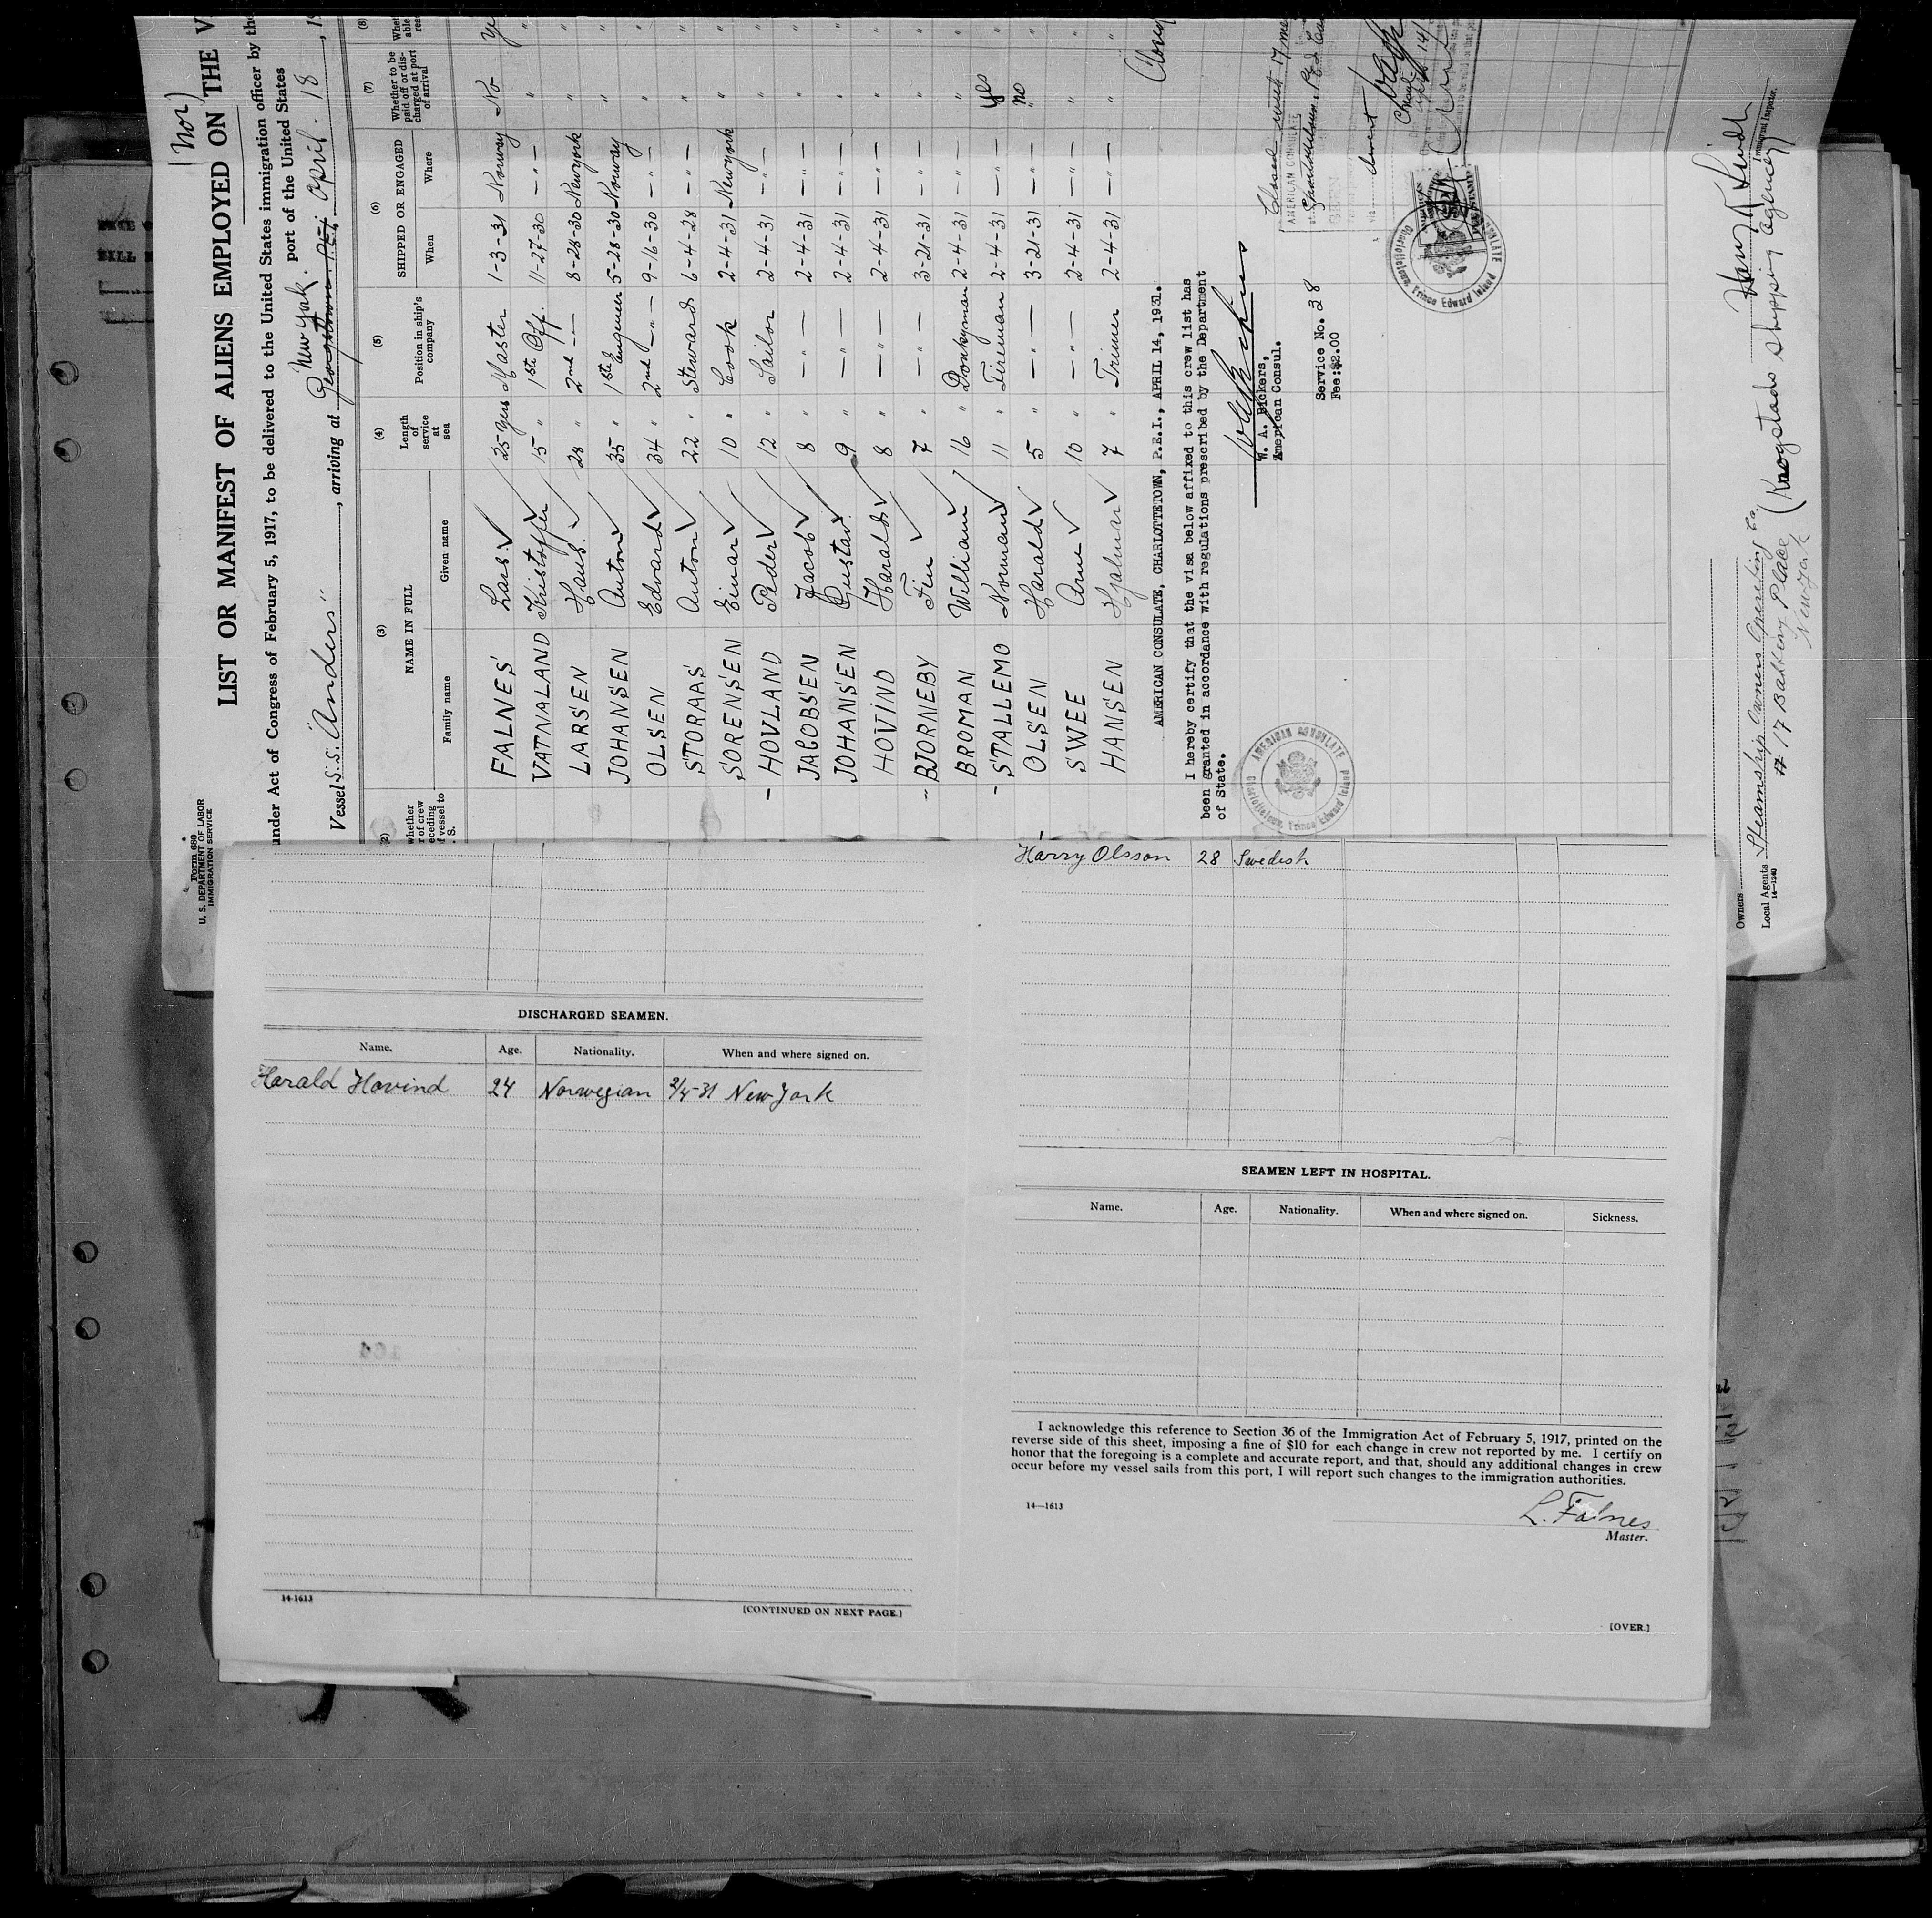 (Nor)
LIST OR MANIFEST OF ALIENS EMPLOYED ON THE V
under Act of Congress of February 5, 1917, to be delivered to the United States immigration officer by the
port of the United States
Vessel S.S. "Anders", arriving at New York. April. 18, 1
Form 680
U. S. DEPARTMENT OF LABOR
IMMIGRATION SERVICE
(2) (3) (4) (5) (6) (7) (8)
NAME IN FULL
Family name Given name
Length of service at sea
Position in ship's company
SHIPPED OR ENGAGED
When Where
Whether to be paid off or discharged at port of arrival
FALNES Lars 25 years Master 1-3-31 Norway No
VATNALAND Kristoffer 15 " 1st Off. 11-27-30 —"— "
LARSEN Hans 28 " 2nd —"— 8-28-30 Newyork "
JOHANSEN Anton 35 " 1st Engeneer 5-28-30 Norway "
OLSEN Edvard 34 " 2nd —"— 9-16-30 —"— "
STORAAS Anton 22 " Steward 6-4-28 —"— "
SORENSEN Einar 10 " Cook 2-4-31 Newyork "
- HOVLAND Peder 12 " Sailor 2-4-31 —"— "
JACOBSEN Jacob 8 " —"— 2-4-31 —"— "
JOHANSEN Gustav 9 " —"— 2-4-31 —"— "
HOVIND Harald 8 " —"— 2-4-31 —"— "
- BJORNEBY Fin 7 " —"— 3-21-31 —"— "
BROMAN William 16 " Donkyman 2-4-31 —"— "
- STALLEMO Norman 11 " Fireman 2-4-31 —"— yes
- OLSEN Harald 5 " —"— 3-21-31 —"— no
SWEE Arne 10 " —"— 2-4-31 —"— "
HANSEN Hjalmar 7 " Trimer 2-4-31 —"— "
AMERICAN CONSULATE, CHARLOTTETOWN, P.E.I., APRIL 14, 1931.
I hereby certify that the visa below affixed to this crew list has
been granted in accordance with regulations prescribed by the Department
of State.
W. A. Bickers,
American Consul.
Service No. 38
Fee: $2.00
AMERICAN CONSULATE
Charlottetown, Prince Edward Island
Closed with 17 me
AMERICAN CONSULATE
CONSULATE
Charlottetown, Prince Edward Island
Immigrant Inspector.
Owners
Local Agents Steamship Owners Operating Co.
14—1240
# 17 Battery Place
New York
(Knogstads shipping agency)
Harry Olsson 28 Swedish
DISCHARGED SEAMEN.
Name. Age. Nationality. When and where signed on.
Harald Hovind 24 Norwegian 2/4-31 New York
14-1613
[CONTINUED ON NEXT PAGE.]
SEAMEN LEFT IN HOSPITAL.
Name. Age. Nationality. When and where signed on. Sickness.
I acknowledge this reference to Section 36 of the Immigration Act of February 5, 1917, printed on the
reverse side of this sheet, imposing a fine of $10 for each change in crew not reported by me. I certify on
honor that the foregoing is a complete and accurate report, and that, should any additional changes in crew
occur before my vessel sails from this port, I will report such changes to the immigration authorities.
14—1613
L. Falnes
Master.
[OVER.]